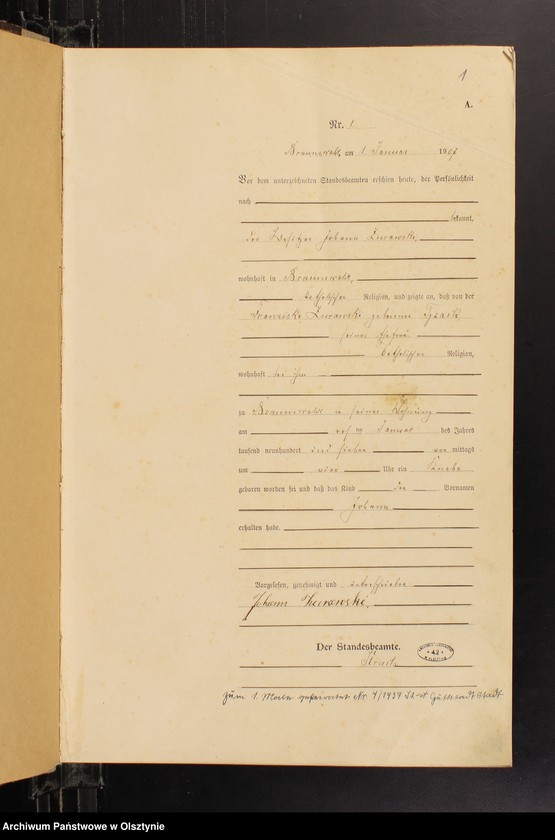 1
A.
Nr. 1.
Braunswalde, am 1. Januar 1907
Vor dem unterzeichneten Standesbeamten erschien heute, der Persönlichkeit
nach
bekannt,
der Besitzer Johann Zurawski,
wohnhaft in Braunswalde,
katholischer Religion, und zeigte an, daß von der
Franziska Zurawski geborene
seiner Ehefrau
katholischer Religion,
wohnhaft bei ihm
zu Braunswalde in seiner Wohnung
am Januar des Jahres
tausend neunhundert und sieben vor mittags
um Uhr ein Knabe
geboren worden sei und daß das Kind den Vornamen
Johann
erhalten habe.
Vorgelesen, genehmigt und unterschrieben
Johann Zurawski.
Der Standesbeamte.
zum 1. Male geheiratet Nr. 4/1939 St-A Guttstadt Stadt
Archiwum Państwowe w Olsztynie